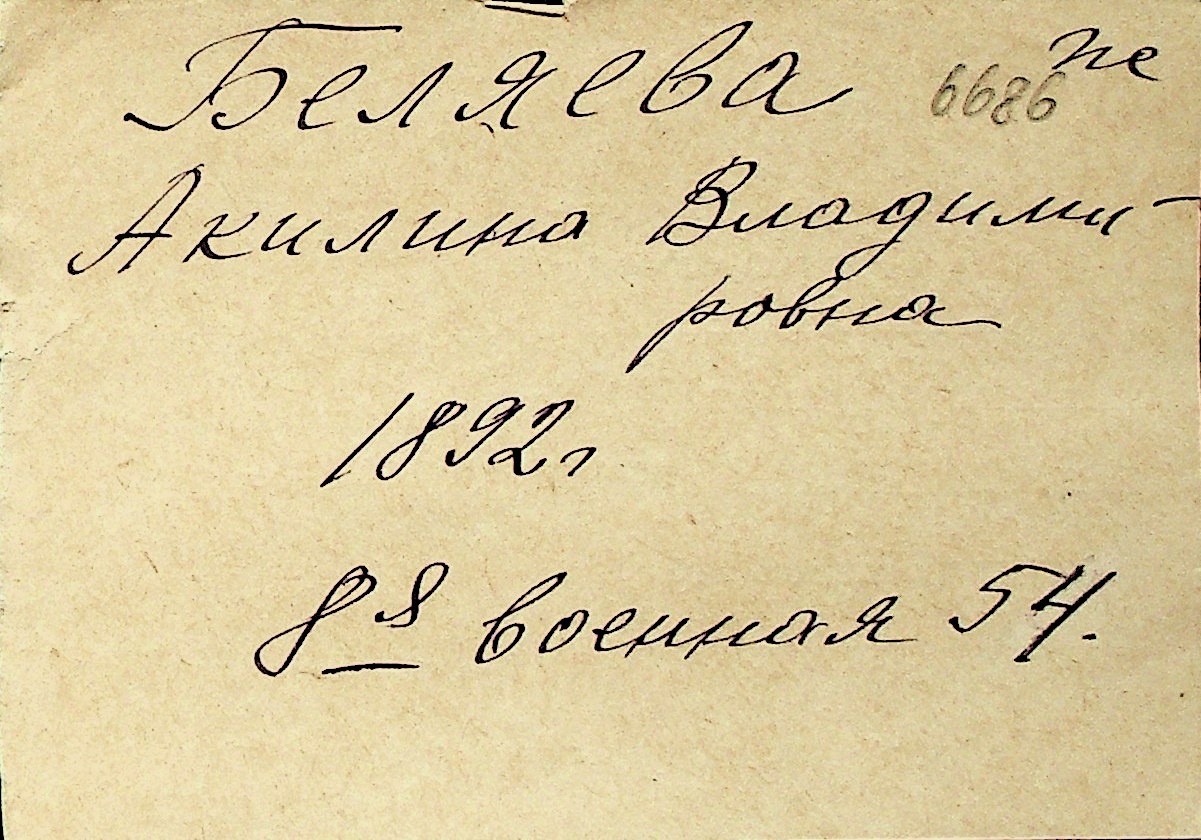 Беляева 6686 пе
Акилина Владими-
ровна
1892г
8я военная 54.